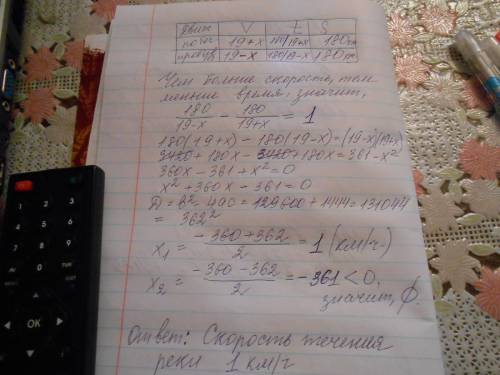 движ V t S
по теч 19+x 180/19+x 180 км
против 19-x 180/19-x 180 км
Чем больше скорость, тем
меньше время, значит,
180/19-x - 180/19+x = 1
180(19+x) - 180(19-x) = (19-x)(19+x)
3420+180x-3420+180x=361-x²
360x-361+x²=0
x²+360x-361=0
D=b²-4ac=129600+1444=131044
= 362²
x₁ = -360+362/2 = 1 (км/ч)
x₂ = -360-362/2 = -361<0,
значит, ∅.
Ответ: Скорость течения
реки 1 км/ч
OK